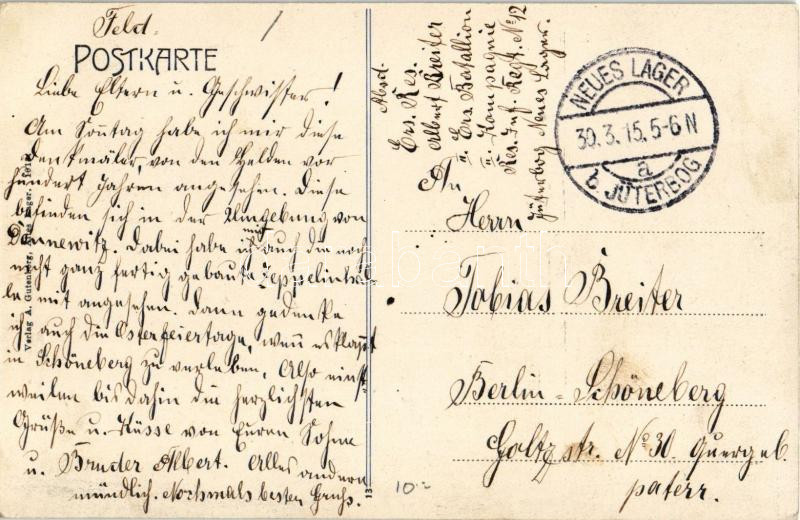 Feld
POSTKARTE
Liebe Eltern u. Geschwister!
Am Sonntag habe ich mir diese
Denkmäler, von den Helden vor
hundert Jahren angesehen. Diese
befinden sich in der Umgebung von
Dennewitz. Dabei habe ich mir auch die noch
nicht ganz fertig gebaute Zeppelinhal-
le mit angesehen. Dann gedenke
ich auch die Osterfeiertage, wenn es klappt
in Schöneberg zu verleben. Also einst-
weilen bis dahin die herzlichsten
Grüße u. Küsse von Euren Sohne
u. Bruder Albert. Alles andere
mündlich. Nochmals besten Gruß.
Verlag A. Gutenberg, Neues Lager.
13
Absd.
Ers. Res.
Albert Breiter
Ers Batallion
Kompagnie
Res. Inf. Regt. No 12
Jüterbog Neues Lager.
NEUES LAGER
30.3.15.5-6N
a
b. JÜTERBOG
An
Herrn
Tobias Breiter
Berlin-Schöneberg
Goltzstr. No 30. Quergeb.
paterr.
10.-